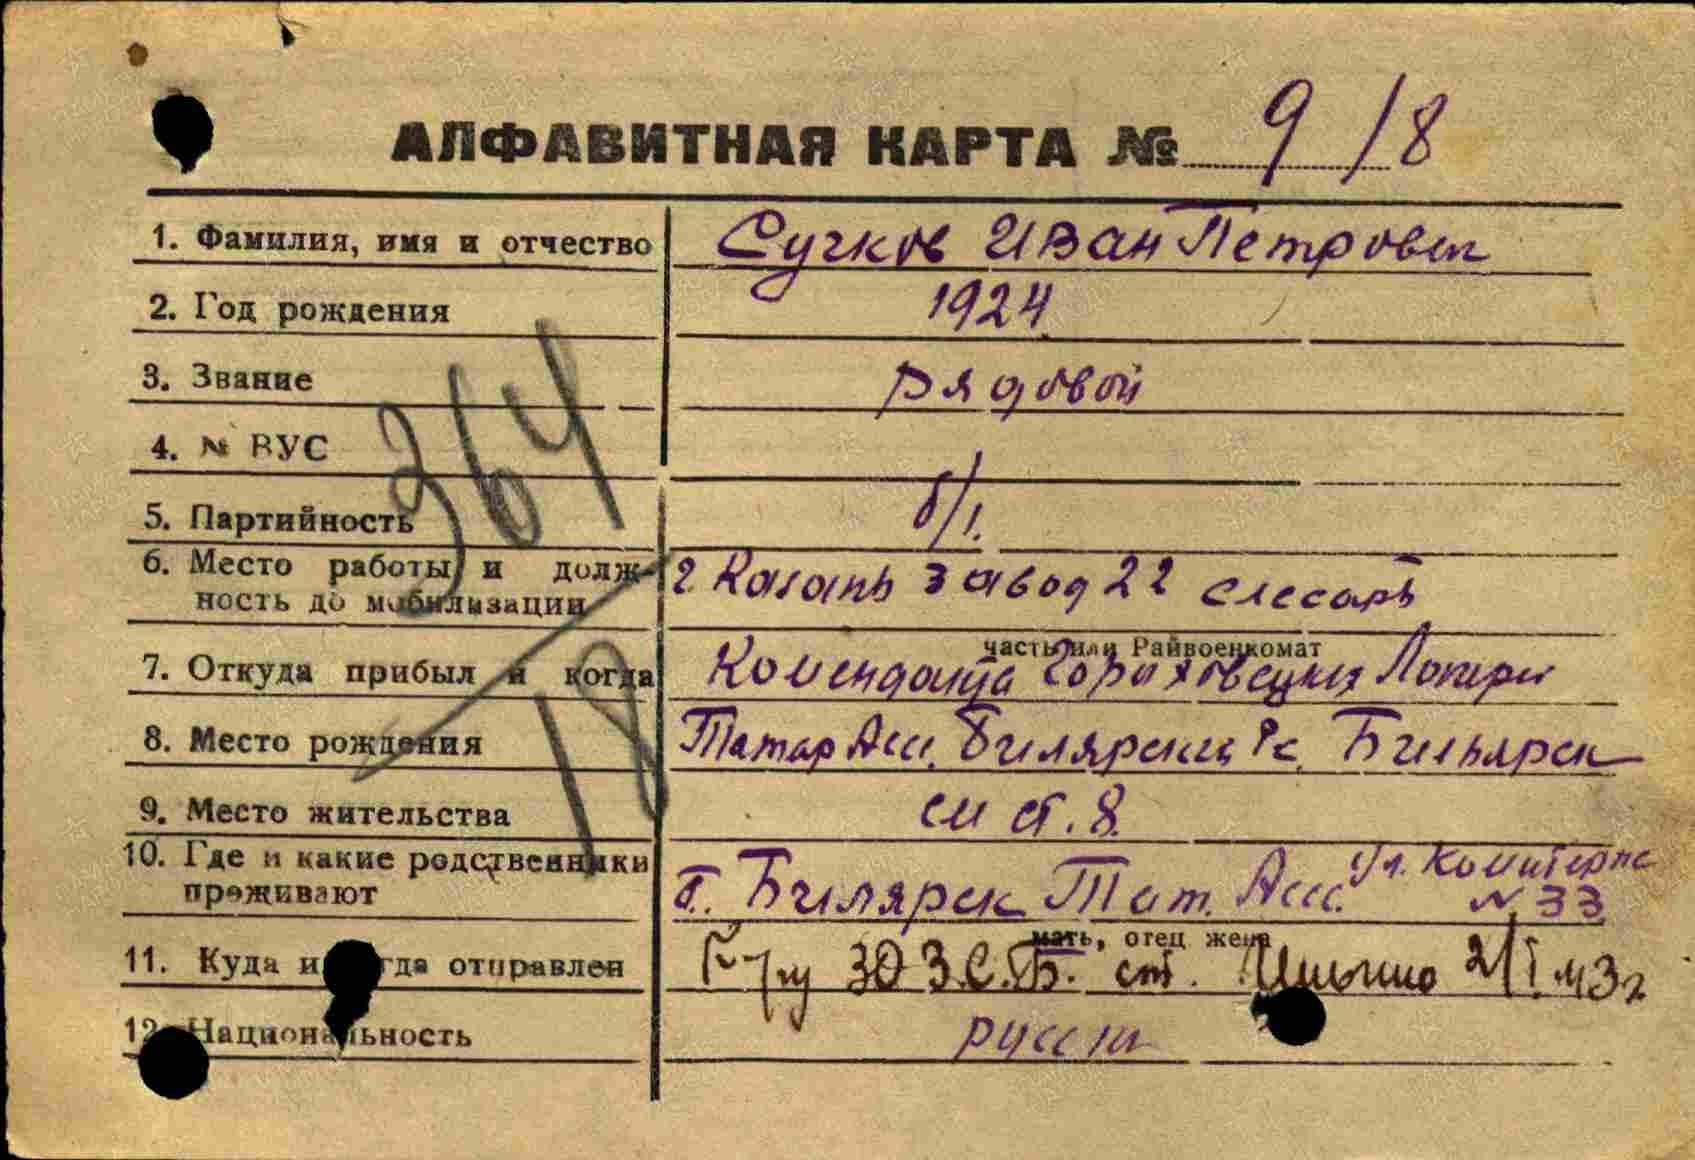 АЛФАВИТНАЯ КАРТА № 9/8
1. Фамилия, имя и отчество Сучков Иван Петрович
2. Год рождения 1924
3. Звание рядовой
4. № ВУС
5. Партийность б/
6. Место работы и долж- г Казань завод 22 слесарь
ность до мобилизации
часть или Райвоенкомат
7. Откуда прибыл и когда Гороховецких Лагерей
8. Место рождения Татар Асс. Билярский Рс. Билярск
9. Место жительства см ст. 8.
10. Где и какие родственники ул. Коминтерна
проживают Билярск Тат. Асс. № 33
мать, отец жена
11. Куда и когда отправлен 30 З.С.Б. ст. 2/I 43г
12. Национальность русск
364
18